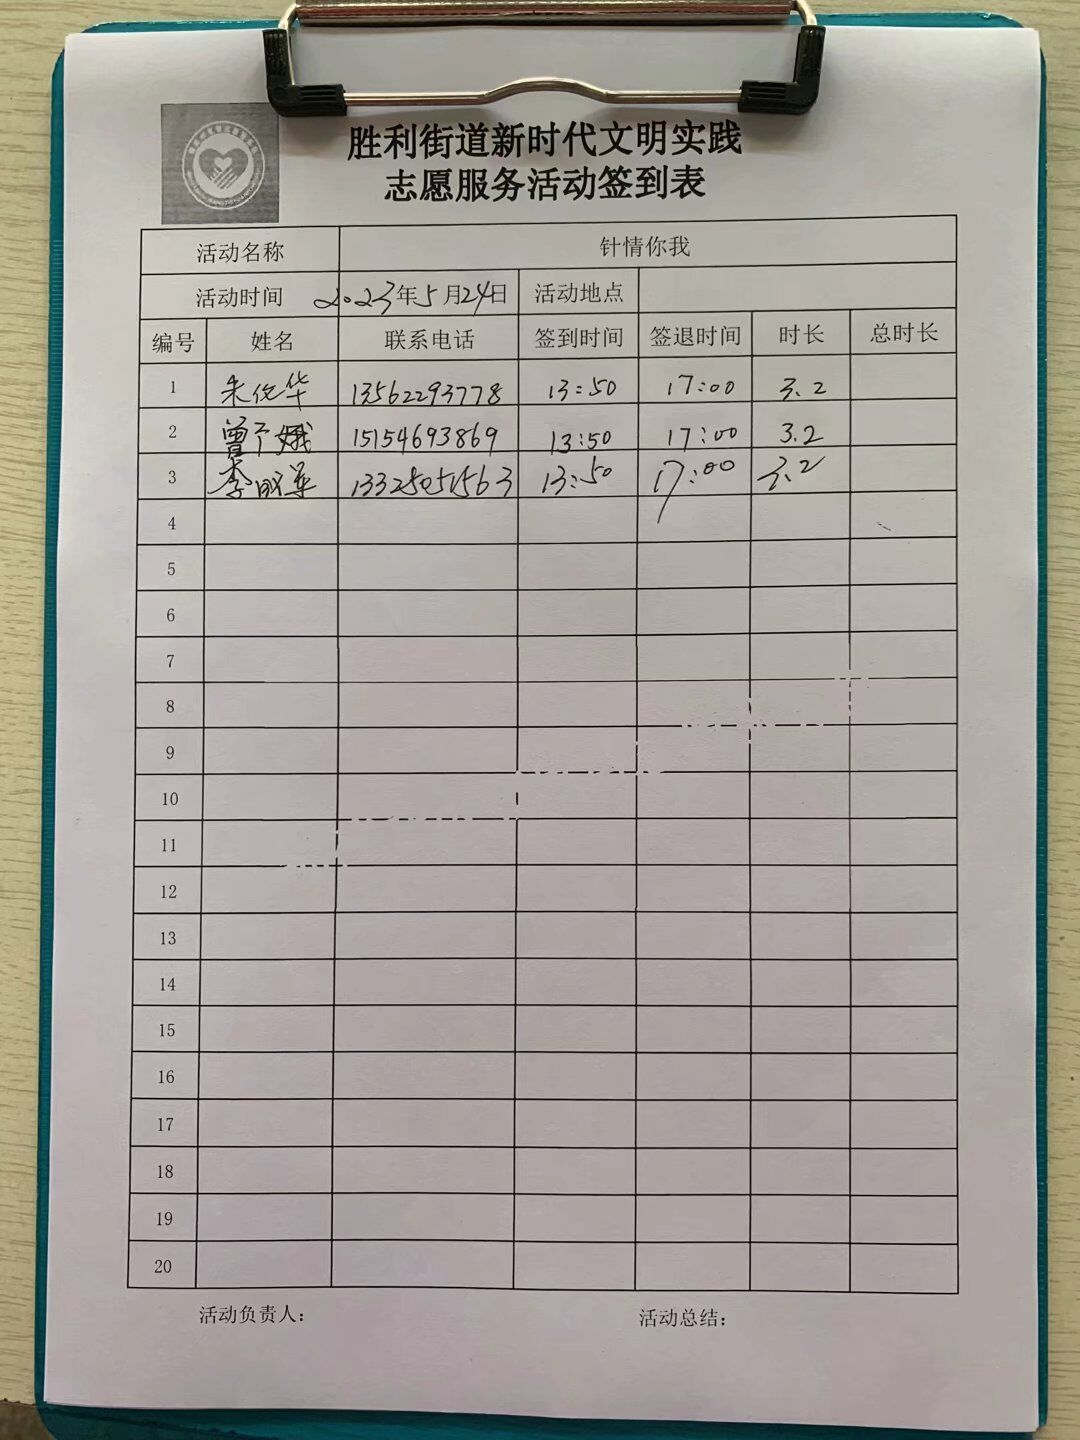 胜利街道新时代文明实践
志愿服务活动签到表
活动名称 针情你我
活动时间 2023年5月24日 活动地点
编号 姓名 联系电话 签到时间 签退时间 时长 总时长
1 朱俊华 13562293778 13:50 17:00 3.2
2 曾 娥 15154693869 13:50 17:00 3.2
3 李 13325051563 13:50 17:00 3.2
4
5
6
7
8
9
10
11
12
13
14
15
16
17
18
19
20
活动负责人: 活动总结: